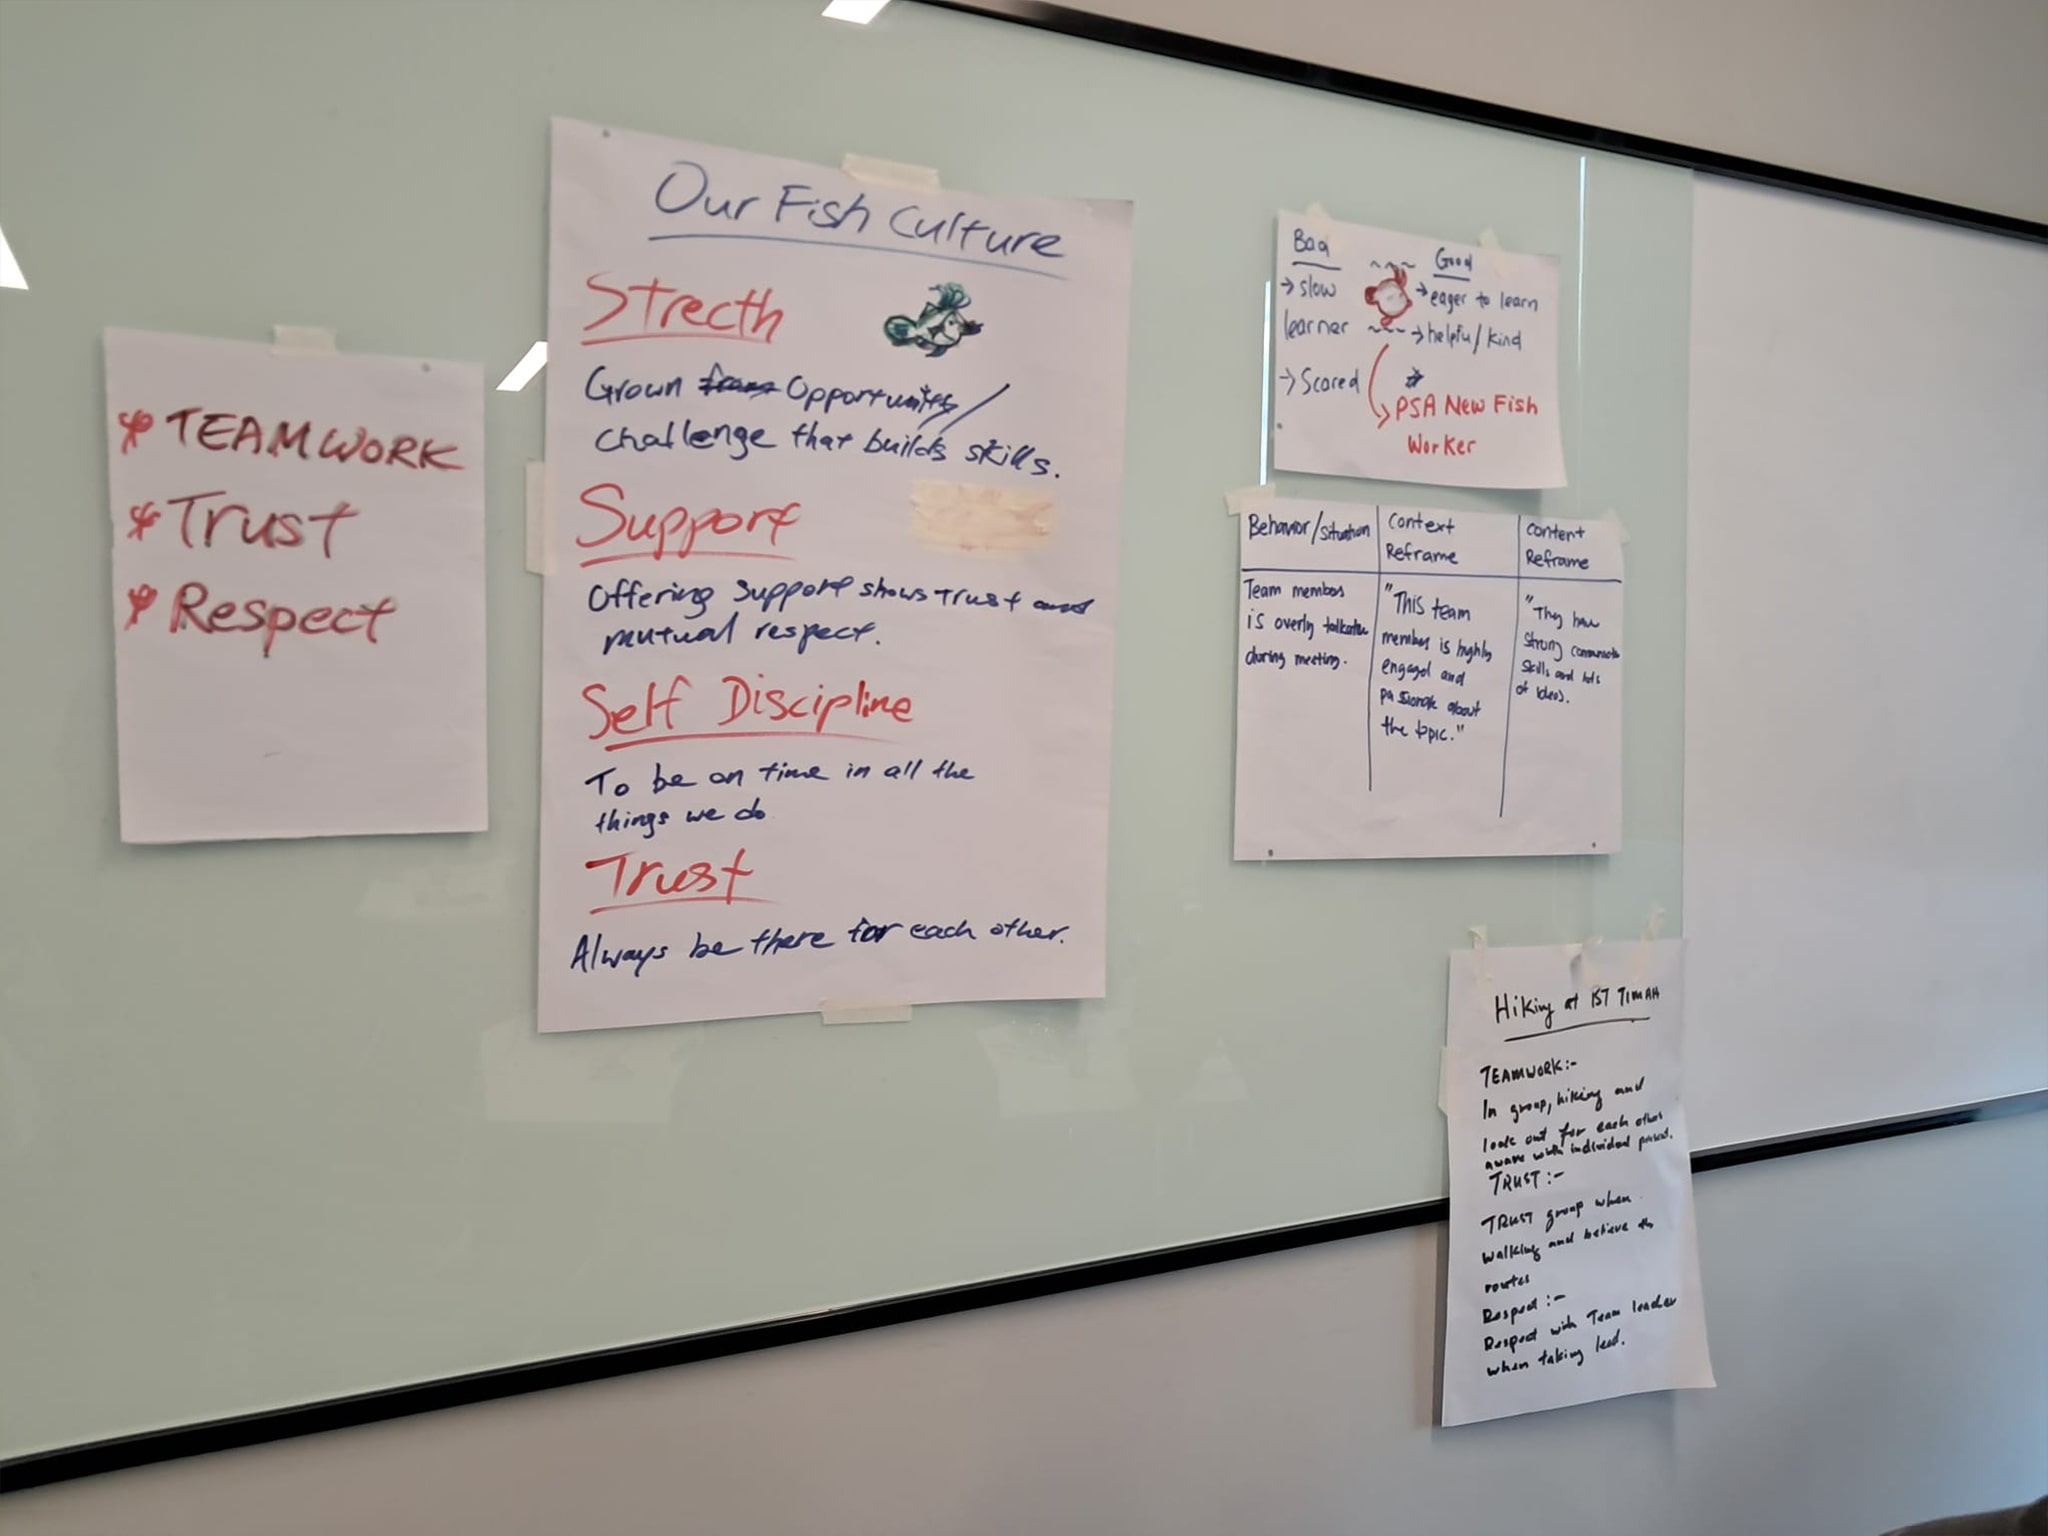 TEAMWORK
Trust
Respect
Our Fish Culture
Strecth
Grown Opportunity/
challenge that builds skills.
Support
Offering support shows trust and
mutual respect.
Self Discipline
To be on time in all the
things we do
Trust
Always be there for each other.
Bad
Good
→ slow
learner
→ Scared
→ eager to learn
→ helpful/kind
PSA New Fish
Worker
Behavior/situation
Context
Reframe
Content
Reframe
Team members
is overly talkative
during meeting.
"This team
members is highly
engaged and
passionate about
the topic."
"They have
strong
skills and lots
of ideas.
Hiking at BT TIMAH
TEAMWORK:-
In group, hiking and
look out for each others
aware with individual present.
TRUST:-
TRUST group when
walking and believe the
routes
Respect:-
Respect with Team leader
when taking lead.